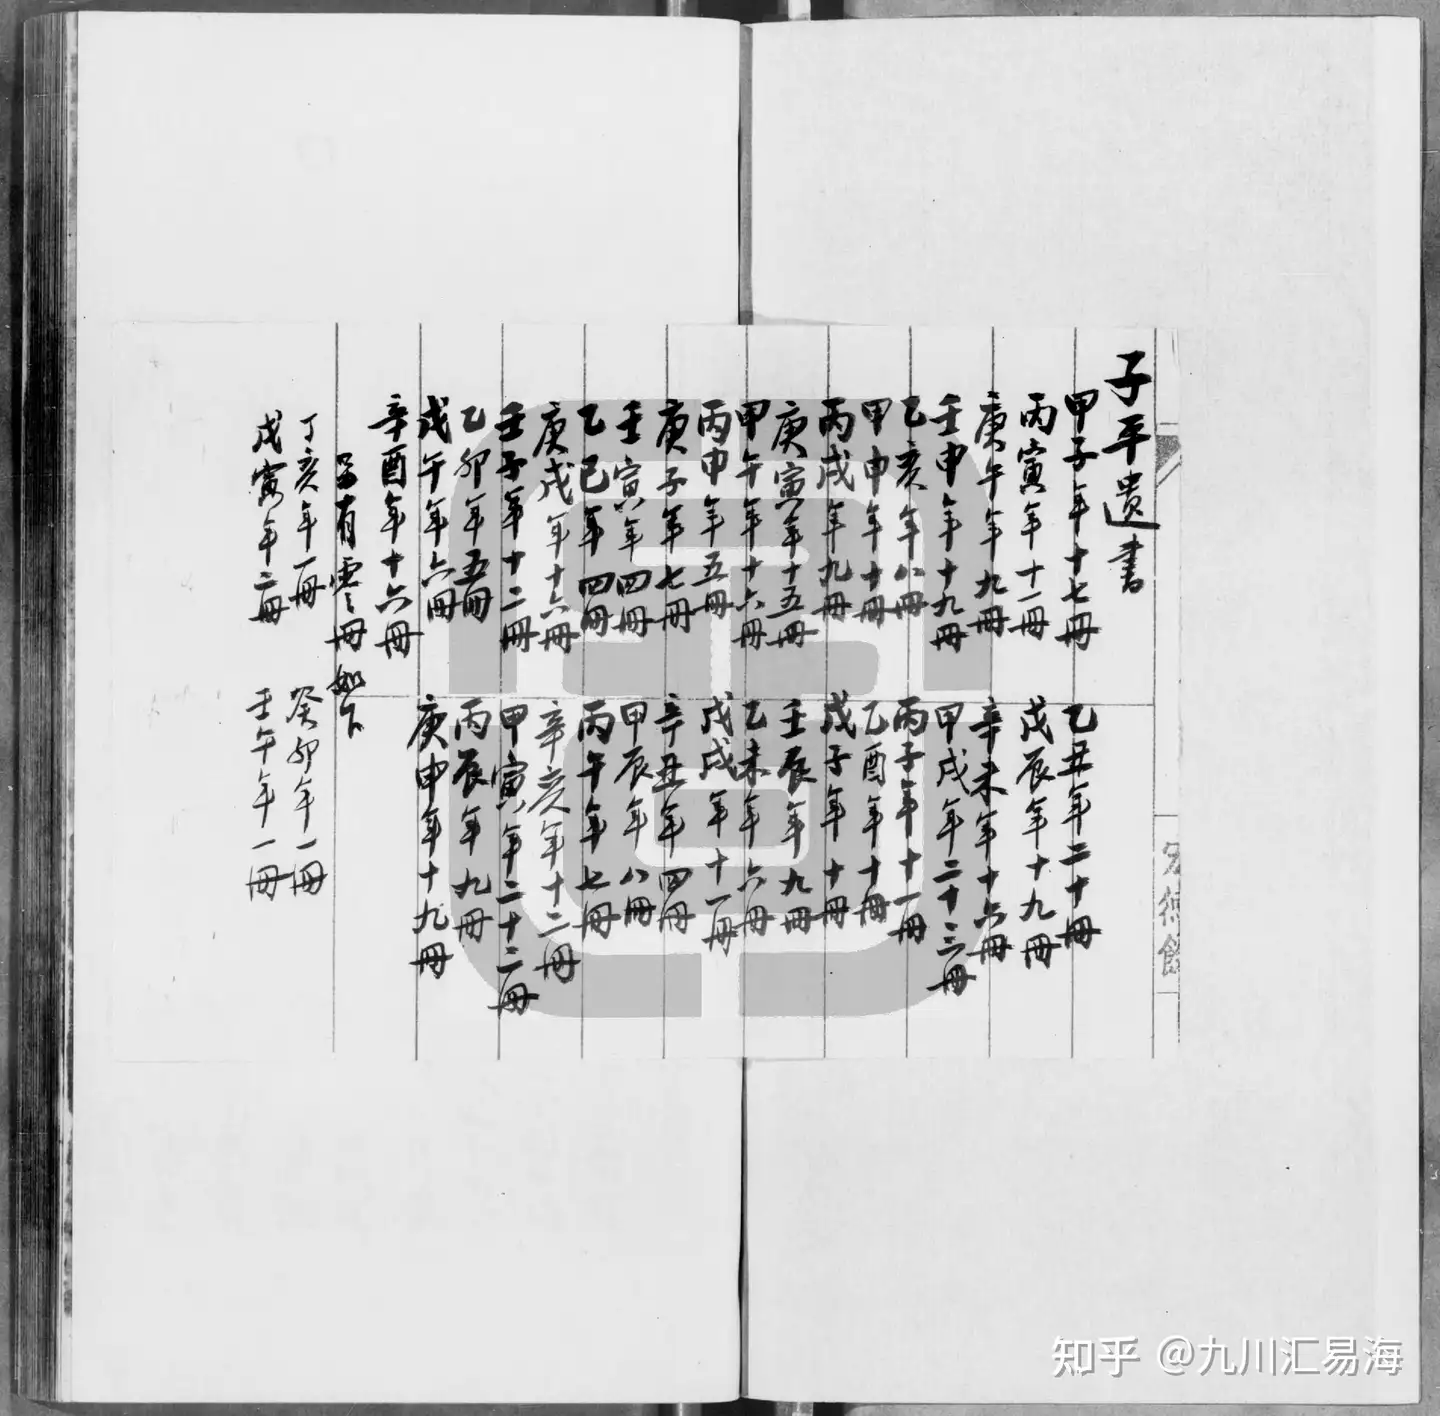 子平遗書
甲子年十七冊 乙丑年二十冊
丙寅年十一冊 戊辰年十九冊
庚午年九冊 辛未年十六冊
壬申年十九冊 甲戌年二十三冊
乙亥年八冊 丙子年十一冊
甲申年十冊 乙酉年十冊
丙戌年九冊 戊子年十冊
庚寅年十五冊 壬辰年九冊
甲午年十六冊 乙未年六冊
丙申年五冊 戊戌年十一冊
庚子年七冊 辛丑年四冊
壬寅年四冊 甲辰年八冊
乙巳年四冊 丙午年七冊
庚戌年十六冊 辛亥年十二冊
壬子年十二冊 甲寅年二十二冊
乙卯年五冊 丙辰年九冊
戊午年六冊 庚申年十九冊
辛酉年十六冊
另有零冊如下
丁亥年一冊 癸卯年一冊
戊寅年二冊 壬午年一冊
知乎 @九川汇易海